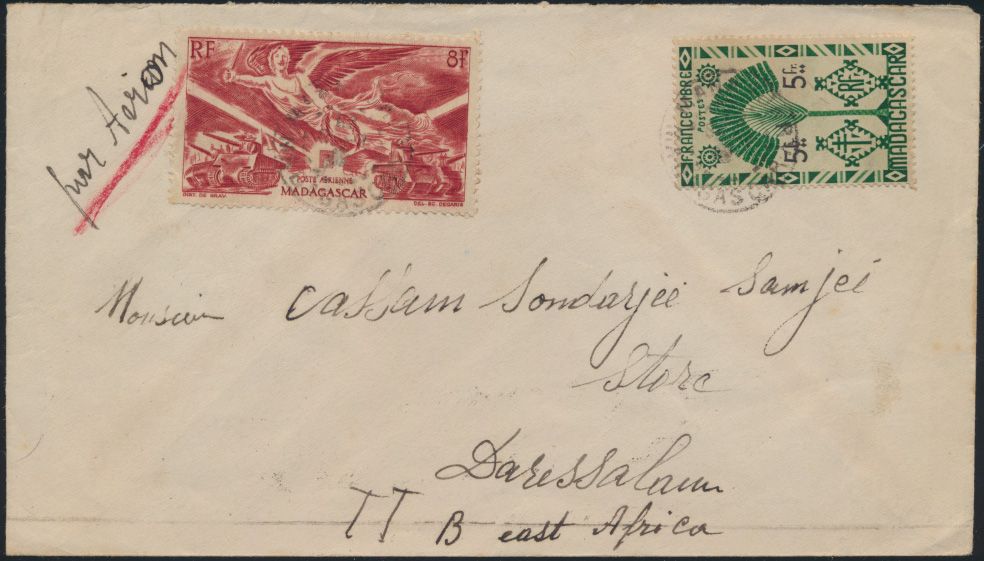 par Avion
RF 8F
POSTE AÉRIENNE
MADAGASCAR
INST. DE GRAV. DEL. SC. DECARIS
FRANCE LIBRE
POSTES
5 Fr.
5 Fr.
RF
MADAGASCAR
GASCAR
Monsieur Cassam Sondarjee Samjei
Store
Daressalam
TT B east Africa